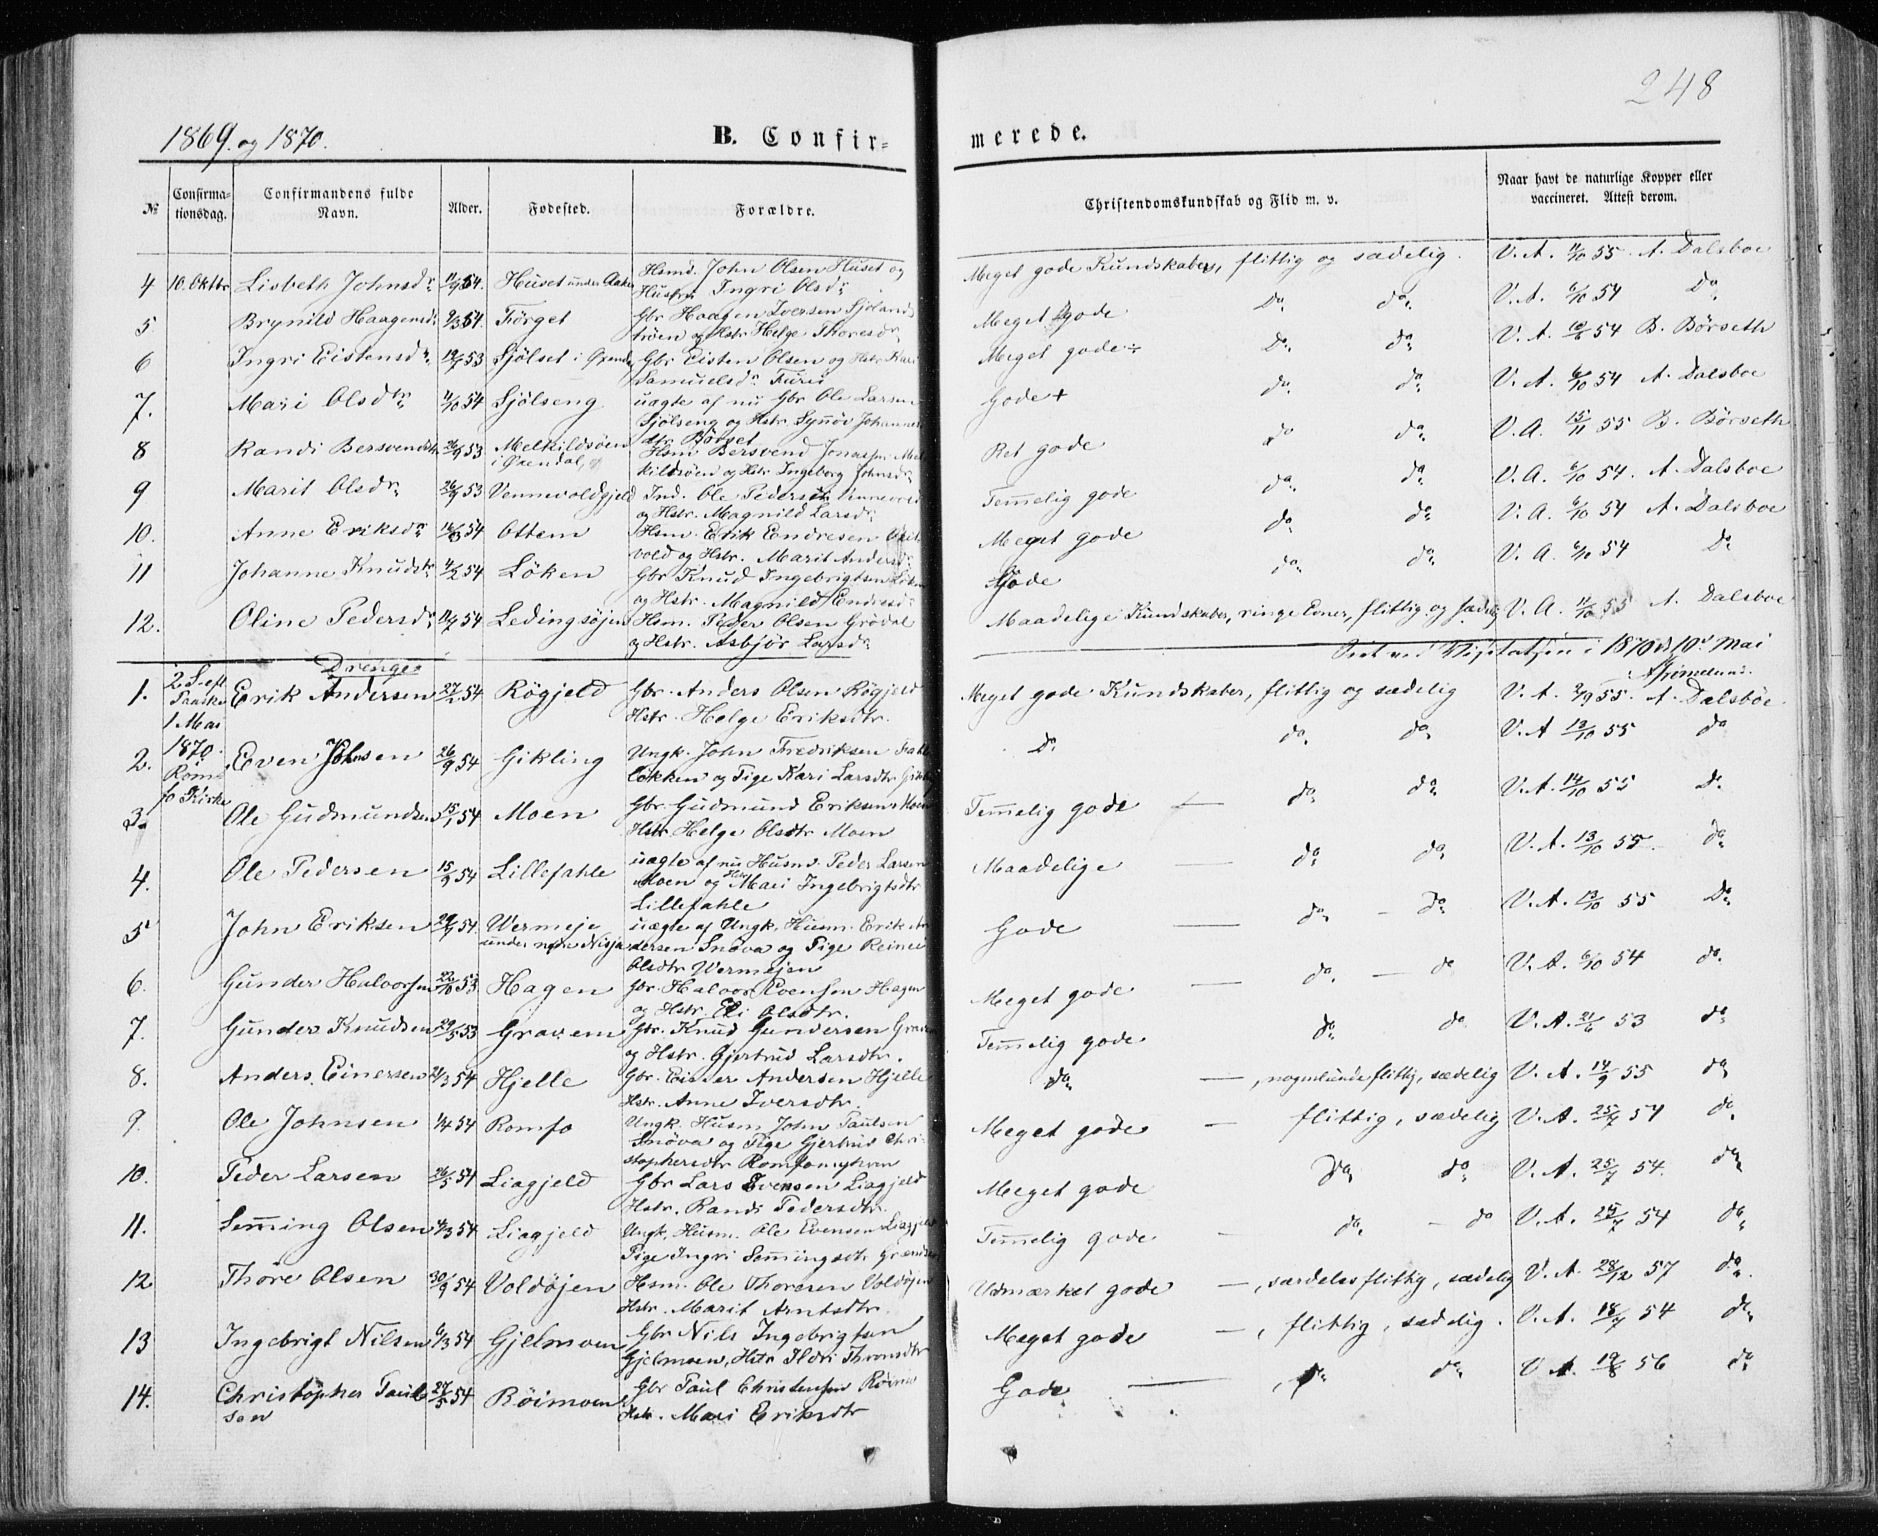 248
1869. og 1870.
B. Confir-
merede.
No
Confirma-
tionsdag.
Confirmandens fulde
Navn.
Alder.
Fødested.
Forældre.
Christendomskundskab og Flid m. v.
Naar havt de naturlige Kopper eller
vaccineret. Attest derom.
4 10. Oktbr Lisbeth Johnsdr 54. Huset under Aaker Hsmd. John Olsen Huset og Meget gode Kundskaber, flittig og sædelig. V. A. 11/10 55. A. Dalsboe
Hustru Ingri Olsdr
5 Brynild Haagensdr 9/3 54. Förget Gbr Haagen Iversen Meget gode Do. do. V. A. 6/10 54 Do
og Hstr Helge Thoresdr
6 Ingri Eistensdr 19/7 53 Sjölset i Øxendal Gbr Eisten Olsen og Hstr Kari Meget gode ÷ Do. do. V. A. 54 B. Börseth
Samuelsdr Furu
7. Mari Olsdtr 11/10 54 Sjölseng uægte af nu Gbr Ole Larsen Gode + do. do. V. A. 6/10 54 A. Dalsboe
Sjölseng og Hstr. Synöv Johannes
dtr Börset
8 Randi Bersvendsdtr 26/9 53 Melkildsöen Hsm Bersvend Jonassen Mel Ret gode do do. V. A. 15/11 55 B. Börseth
i Øxendal, kildsöen og Hstr Ingeborg Johnsdr
9 Marit Olsdr 26/9 53 Vennevoldgjeld Ind. Ole Pedersen Temelig gode do. do. V. A. 6/10 54. A. Dalsboe
og Hstr. Magnild Larsdr
10. Anne Eriksdr 16/3 54 Ottem Hsm. Erik Endresen Meget gode do. do. V. A. 6/10 54 A. Dalsboe
vold og Hstr. Marit Andersdr
11 Johanne Knudsdr 4/2 54 Löken Gbr Knud Ingebrigtsen Löken Gode do. do. V. A. 6/10 54 Do
og Hstr. Magnild Endresdr
12. Oline Pedersdr 11/7 54 Ledingsöjen Hsm. Peder Olsen Grödal Maadelige Kundskaber, ringe Evner, flittig og sædelig V. A. 11/10 55 A. Dalsboe
og Hstr. Asbjör Larsdr
i 1870 d 10de Mai
Drenge
1. 2 S. eft Erik Andersen 27/2 54 Rögjeld Gbr. Anders Olsen Rögjeld Meget gode Kundskaber, flittig og sædelig V. A. 2/9 55. A. Dalsböe
Paaske Hstr. Helge Eriksdtr.
1 Mai
1870.
Romfo Kirke
2. Even Johnsen 26/9 54 Gikling Ungk. John Fredriksen Fahle Do. do. do. V. A 13/10 55 do
lökken og Pige Kari Larsdtr Gikling
3. Ole Gudmundsen 15/1 54 Moen Gbr. Gudmund Eriksen Moen Temelig gode — do. do. V. A. 14/10 55 Do
Hstr Helge Olsdtr Moen
4. Ole Pedersen 15/9 54 Lillefahle uægte af nu Husmd Peder Larsen Maadelige — do. do. V. A. 13/10 55. do.
Moen og Hstr Mari Ingebrigtsdtr
Lillefahle
5 John Eriksen 29/1 54. Wermeje uægte af Ungk. Husm. Erik An Gode — do. — do. V. A. 13/10 55 Do.
under dersen Snöva og Pige Reinei
Olsdtr Wermejen
6. Gunder Halvorsen 22/10 53 Hagen Gbr. Halvor Evensen Hagen Meget gode — do. — do V. A. 6/10 54 do.
og Hstr. Eli Olsdtr.
7. Gunder Knudsen 29/5 53 Gravem Gbr. Knud Gundersen Gravem Temelig gode do. do. V. A. 21/6 53 do.
og Hstr. Gjertrud Larsdtr.
8. Anders Einersen 21/3 54 Hjelle Gbr. Einer Andersen Hjelle do. —, nogenlunde flittig, sædelig V. A. 14/9 55 do.
Hstr. Anne Iversdtr.
9. Ole Johnsen 1/4 54 Romfo Ungk. Husm John Paulsen Meget gode — flittig, sædelig V. A. 25/7 54 do.
Snöva og Pige Gjertrud Chri-
stophersdtr Romfomyhren
10. Peder Larsen 26/5 54 Liagjeld Gbr Lars Iversen Liagjeld Meget gode Do. do. V. A. 25/7 54. do.
Hstr. Randi Pedersdtr.
11. Seming Olsen 4/3 54 Liagjeld Ungk. Husm. Ole Evensen Liagjeld Temelig gode — do. — do V. A. 25/7 54 do.
Pige Ingri Semingsdtr
12 Thore Olsen 30/9 54 Voldöjen Hsm. Ole Thoresen Voldöjen Udmærket gode —, særdeles flittig, sædelig V. A. 28/12 57 do.
Hstr. Marit Arntsdtr.
13 Ingebrigt Nilsen 6/3 54 Gjelmoen Gbr Nils Ingebrigtsen Meget gode —, flittig, sædelig. V. A. 18/7 54 do.
Gjelmoen, Hstr Ildri Thronsdtr
14. Christopher Paul 27/5 54 Röimoen Gbr Paul Christensen Röimo Gode —, do. do. V. A. 19/8 56 do.
sen Hstr. Mari Eriksdtr